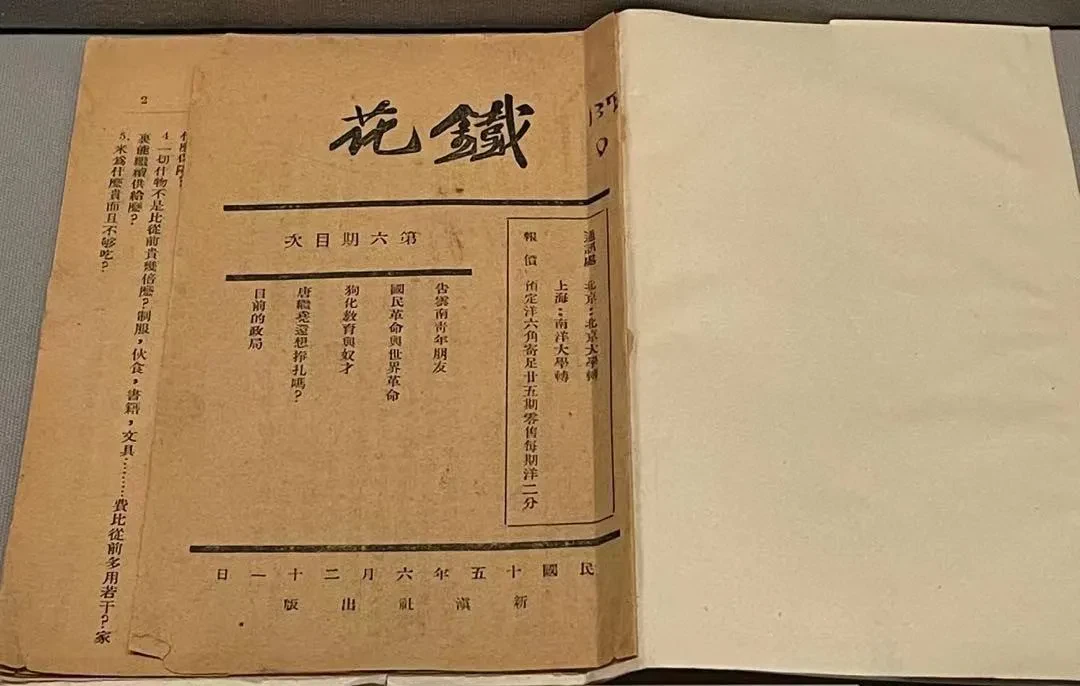 鐵花
通訊處 北京:北京大學轉
上海:南洋大學轉
報價 預定洋六角寄足廿五期零售每期洋二分
第六期目次
告雲南青年朋友
國民革命與世界革命
狗化教育與奴才
唐繼堯還想掙扎嗎?
目前的政局
民國十五年六月二十一日
新滇社出版
2
4. 一切什物不是比從前貴幾倍麼?制服,伙食,書籍,文具………費比從前多用若干?家
裏能繼續供給麼?
5. 米爲什麼貴而且不够吃?